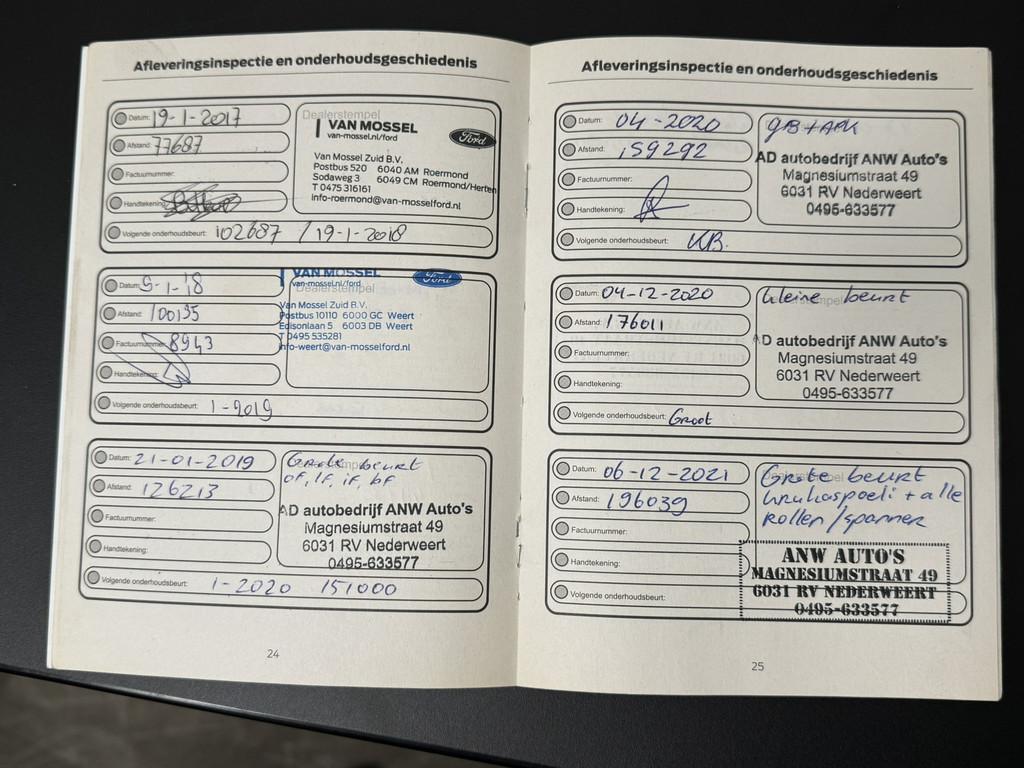 Afleveringsinspectie en onderhoudsgeschiedenis
Datum: 19-1-2017
Afstand: 77687
Factuurnummer:
Handtekening:
Volgende onderhoudsbeurt: 102687 / 19-1-2018
Dealerstempel
VAN MOSSEL
van-mossel.nl/ford
Ford
Van Mossel Zuid B.V.
Postbus 520 6040 AM Roermond
Sodaweg 3 6049 CM Roermond/Herten
T 0475 316161
info-roermond@van-mosselford.nl
Datum: 9-1-'18
Afstand: 100135
Factuurnummer: 8943
Handtekening:
Volgende onderhoudsbeurt: 1-2019
VAN MOSSEL
van-mossel.nl/ford
Ford
Dealerstempel
Van Mossel Zuid B.V.
Postbus 10110 6000 GC Weert
Edisonlaan 5 6003 DB Weert
T 0495 535281
info-weert@van-mosselford.nl
Datum: 21-01-2019
Afstand: 126213
Factuurnummer:
Handtekening:
Volgende onderhoudsbeurt: 1-2020 151000
Grote beurt
of, lf, if, bf
AD autobedrijf ANW Auto's
Magnesiumstraat 49
6031 RV Nederweert
0495-633577
24
Afleveringsinspectie en onderhoudsgeschiedenis
Datum: 04-2020
Afstand: 159292
Factuurnummer:
Handtekening:
Volgende onderhoudsbeurt: KB.
GB + APK
AD autobedrijf ANW Auto's
Magnesiumstraat 49
6031 RV Nederweert
0495-633577
Datum: 04-12-2020
Afstand: 176011
Factuurnummer:
Handtekening:
Volgende onderhoudsbeurt: Groot
Kleine beurt
AD autobedrijf ANW Auto's
Magnesiumstraat 49
6031 RV Nederweert
0495-633577
Datum: 06-12-2021
Afstand: 196039
Factuurnummer:
Handtekening:
Volgende onderhoudsbeurt:
Grote beurt
+ alle
rollen/spanner
ANW AUTO'S
MAGNESIUMSTRAAT 49
6031 RV NEDERWEERT
0495-633577
25